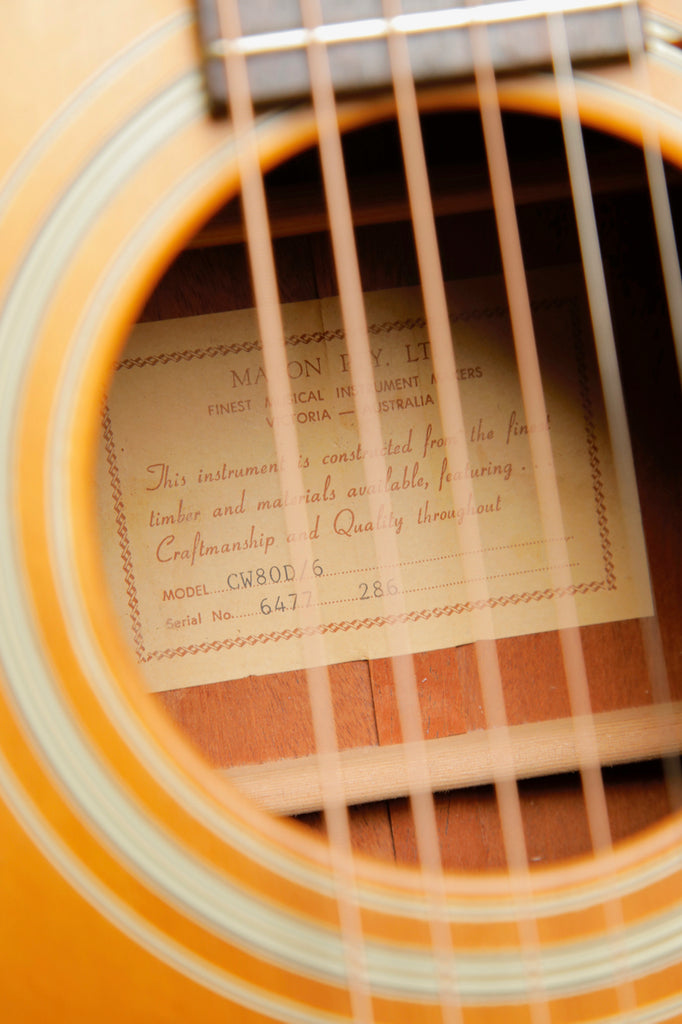 MATON PTY. LTD.
FINEST MUSICAL INSTRUMENT MAKERS
VICTORIA — AUSTRALIA
This instrument is constructed from the finest
timber and materials available, featuring . . .
Craftmanship and Quality throughout
MODEL CW80D/6
Serial No. 6477 286